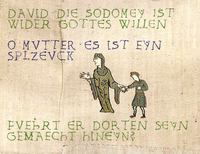 DAVID DIE SODOMEY IST
WIDER GOTTES WILLEN
O MVTTER · ES IST EYN
SPLZEVCK
FVEHRT ER DORTEN SEYN
GEMAECHT HINEYN?